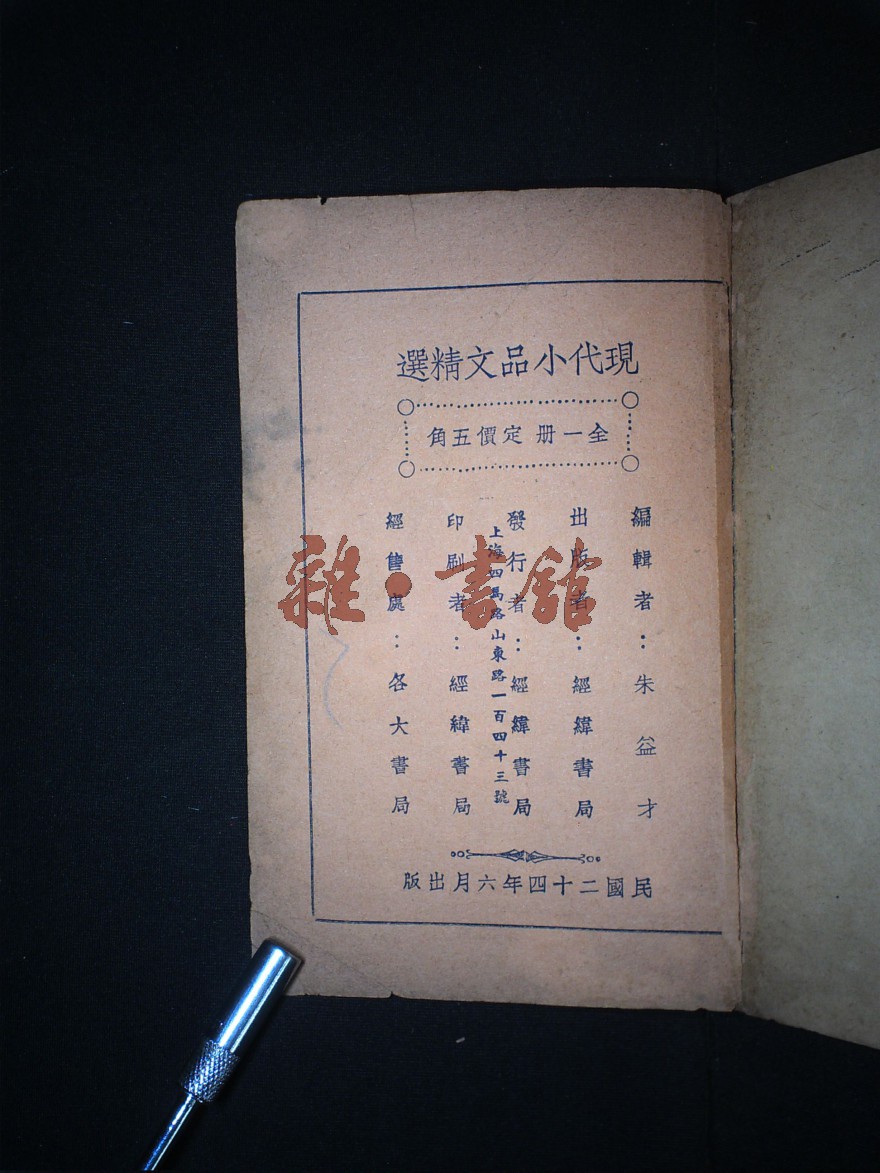 現代小品文精選
全一册 定價五角
編輯者：朱益才
出版者：經緯書局
發行者：經緯書局
上海四馬路山東路一百四十三號
印刷者：經緯書局
經售處：各大書局
民國二十四年六月出版
雜·書館